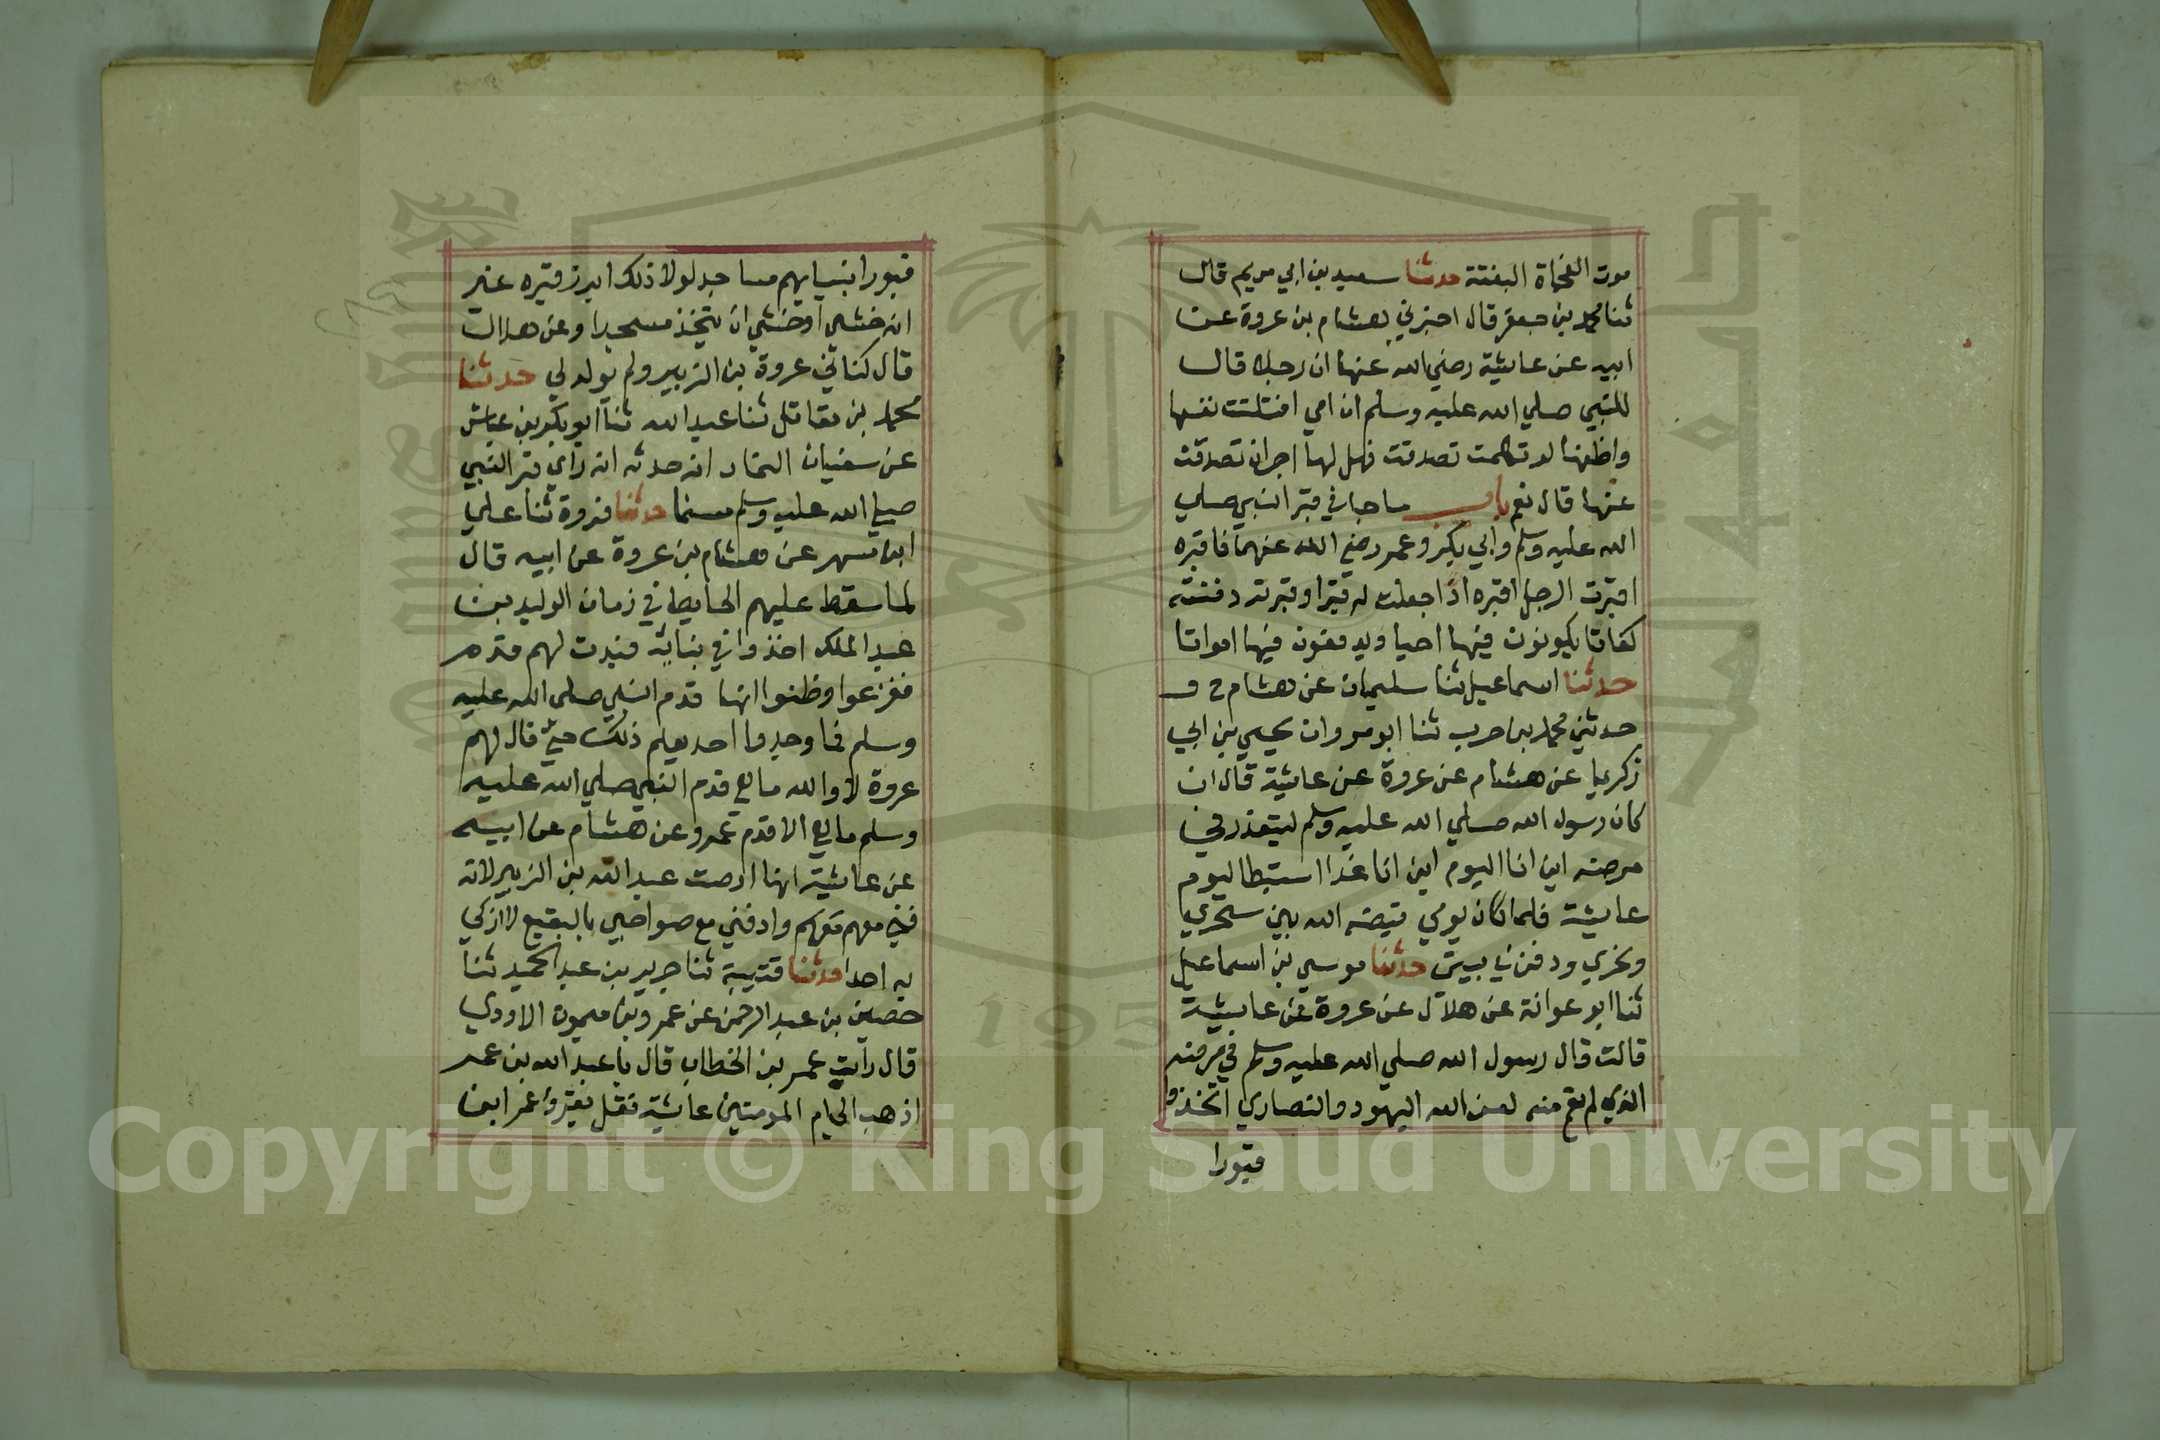 موت الفجاة البغتة حدثنا سعيد بن ابي مريم قال
ثنا محمد بن جعفر قال اخبرني هشام بن عروة عن
ابيه عن عايشة رضي الله عنها ان رجلا قال
للنبي صلي الله عليه وسلم ان امي افتلتت نفسها
واظنها لو تكلمت تصدقت فهل لها اجر ان تصدقت
عنها قال نعم باب ما جا في قبر النبي صلي
الله عليه وسلم وابي بكر وعمر رضي الله عنهما فاقبره
اقبرت الرجل اقبره اذا جعلت له قبرا وقبرته دفنته
كفاتا يكونون فيها احيا ويدفنون فيها امواتا
حدثنا اسماعيل ثنا سليمان عن هشام ح و
حدثني محمد بن حرب ثنا ابو مروان يحيي بن ابي
زكريا عن هشام عن عروة عن عايشة قال ان
كان رسول الله صلي الله عليه وسلم ليتعذر في
مرضه اين انا اليوم اين انا غدا استبطا ليوم
عايشة فلما كان يومي قبضه الله بين سحري
ونحري ودفن في بيتي حدثنا موسي بن اسماعيل
ثنا ابو عوانة عن هلال عن عروة عن عايشة
قالت قال رسول الله صلي الله عليه وسلم في مرضه
الذي لم يقم منه لعن الله اليهود والنصاري اتخذو
قبورا
قبور انبيايهم مساجد لولا ذلك ابرز قبره غير
انه خشي او خشي ان يتخذ مسجدا وعن هلال
قال كناني عروة بن الزبير ولم يولد لي حدثنا
محمد بن مقاتل ثنا عبد الله ثنا ابو بكر بن عياش
عن سفيان التمار انه حدثه انه راي قبر النبي
صلي الله عليه وسلم مسنما حدثنا فروة ثنا علي
ابن مسهر عن هشام بن عروة عن ابيه قال
لما سقط عليهم الحايط في زمان الوليد بن
عبد الملك اخذوا في بنايه فبدت لهم قدم
ففزعوا وظنوا انها قدم النبي صلي الله عليه
وسلم فما وجدوا احد يعلم ذلك حتي قال لهم
عروة لا والله ما هي قدم النبي صلي الله عليه
وسلم ما هي الا قدم عمر وعن هشام عن ابيه
عن عايشة انها اوصت عبد الله بن الزبير لا تد
فني معهم وادفني مع صواحبي بالبقيع لا ازكي
به احدا حدثنا قتيبة ثنا جرير بن عبد الحميد ثنا
حصين بن عبد الرحمن عن عمرو بن ميمون الاودي
قال رايت عمر بن الخطاب قال يا عبد الله بن عمر
اذهب الي ام المومنين عايشة فقل يقرو عمر ابن
Copyright © King Saud University
195